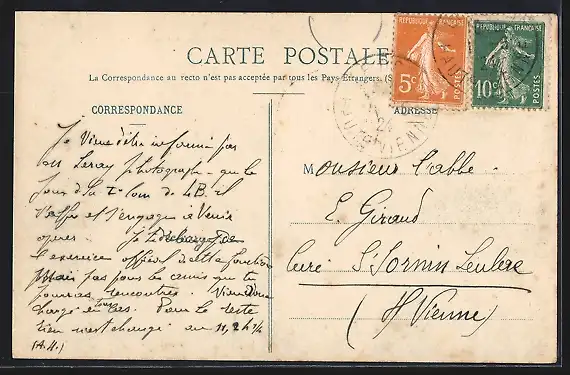 CARTE POSTALE
La Correspondance au recto n'est pas acceptée par tous les Pays Étrangers. (S
CORRESPONDANCE
ADRESSE
REPUBLIQUE FRANÇAISE
5c
POSTES
REPUBLIQUE FRANÇAISE
10c
POSTES
HAUTE VIENNE
Je Viens d'être informé par
Leray photographe que le
jour de la
il
s'offre et s'engage à Venir
opérer. Je
l'exercice officiel de cette fonction
mais pas pour les amis que tu
pourras rencontrer. Viens donc
en tous cas. Pour le reste
rien n'est changé au 11, 2h 1/2
(A.H.)
Monsieur l'abbé
E. Giraud
Curé St Sornin Leulac
(Hte Vienne)